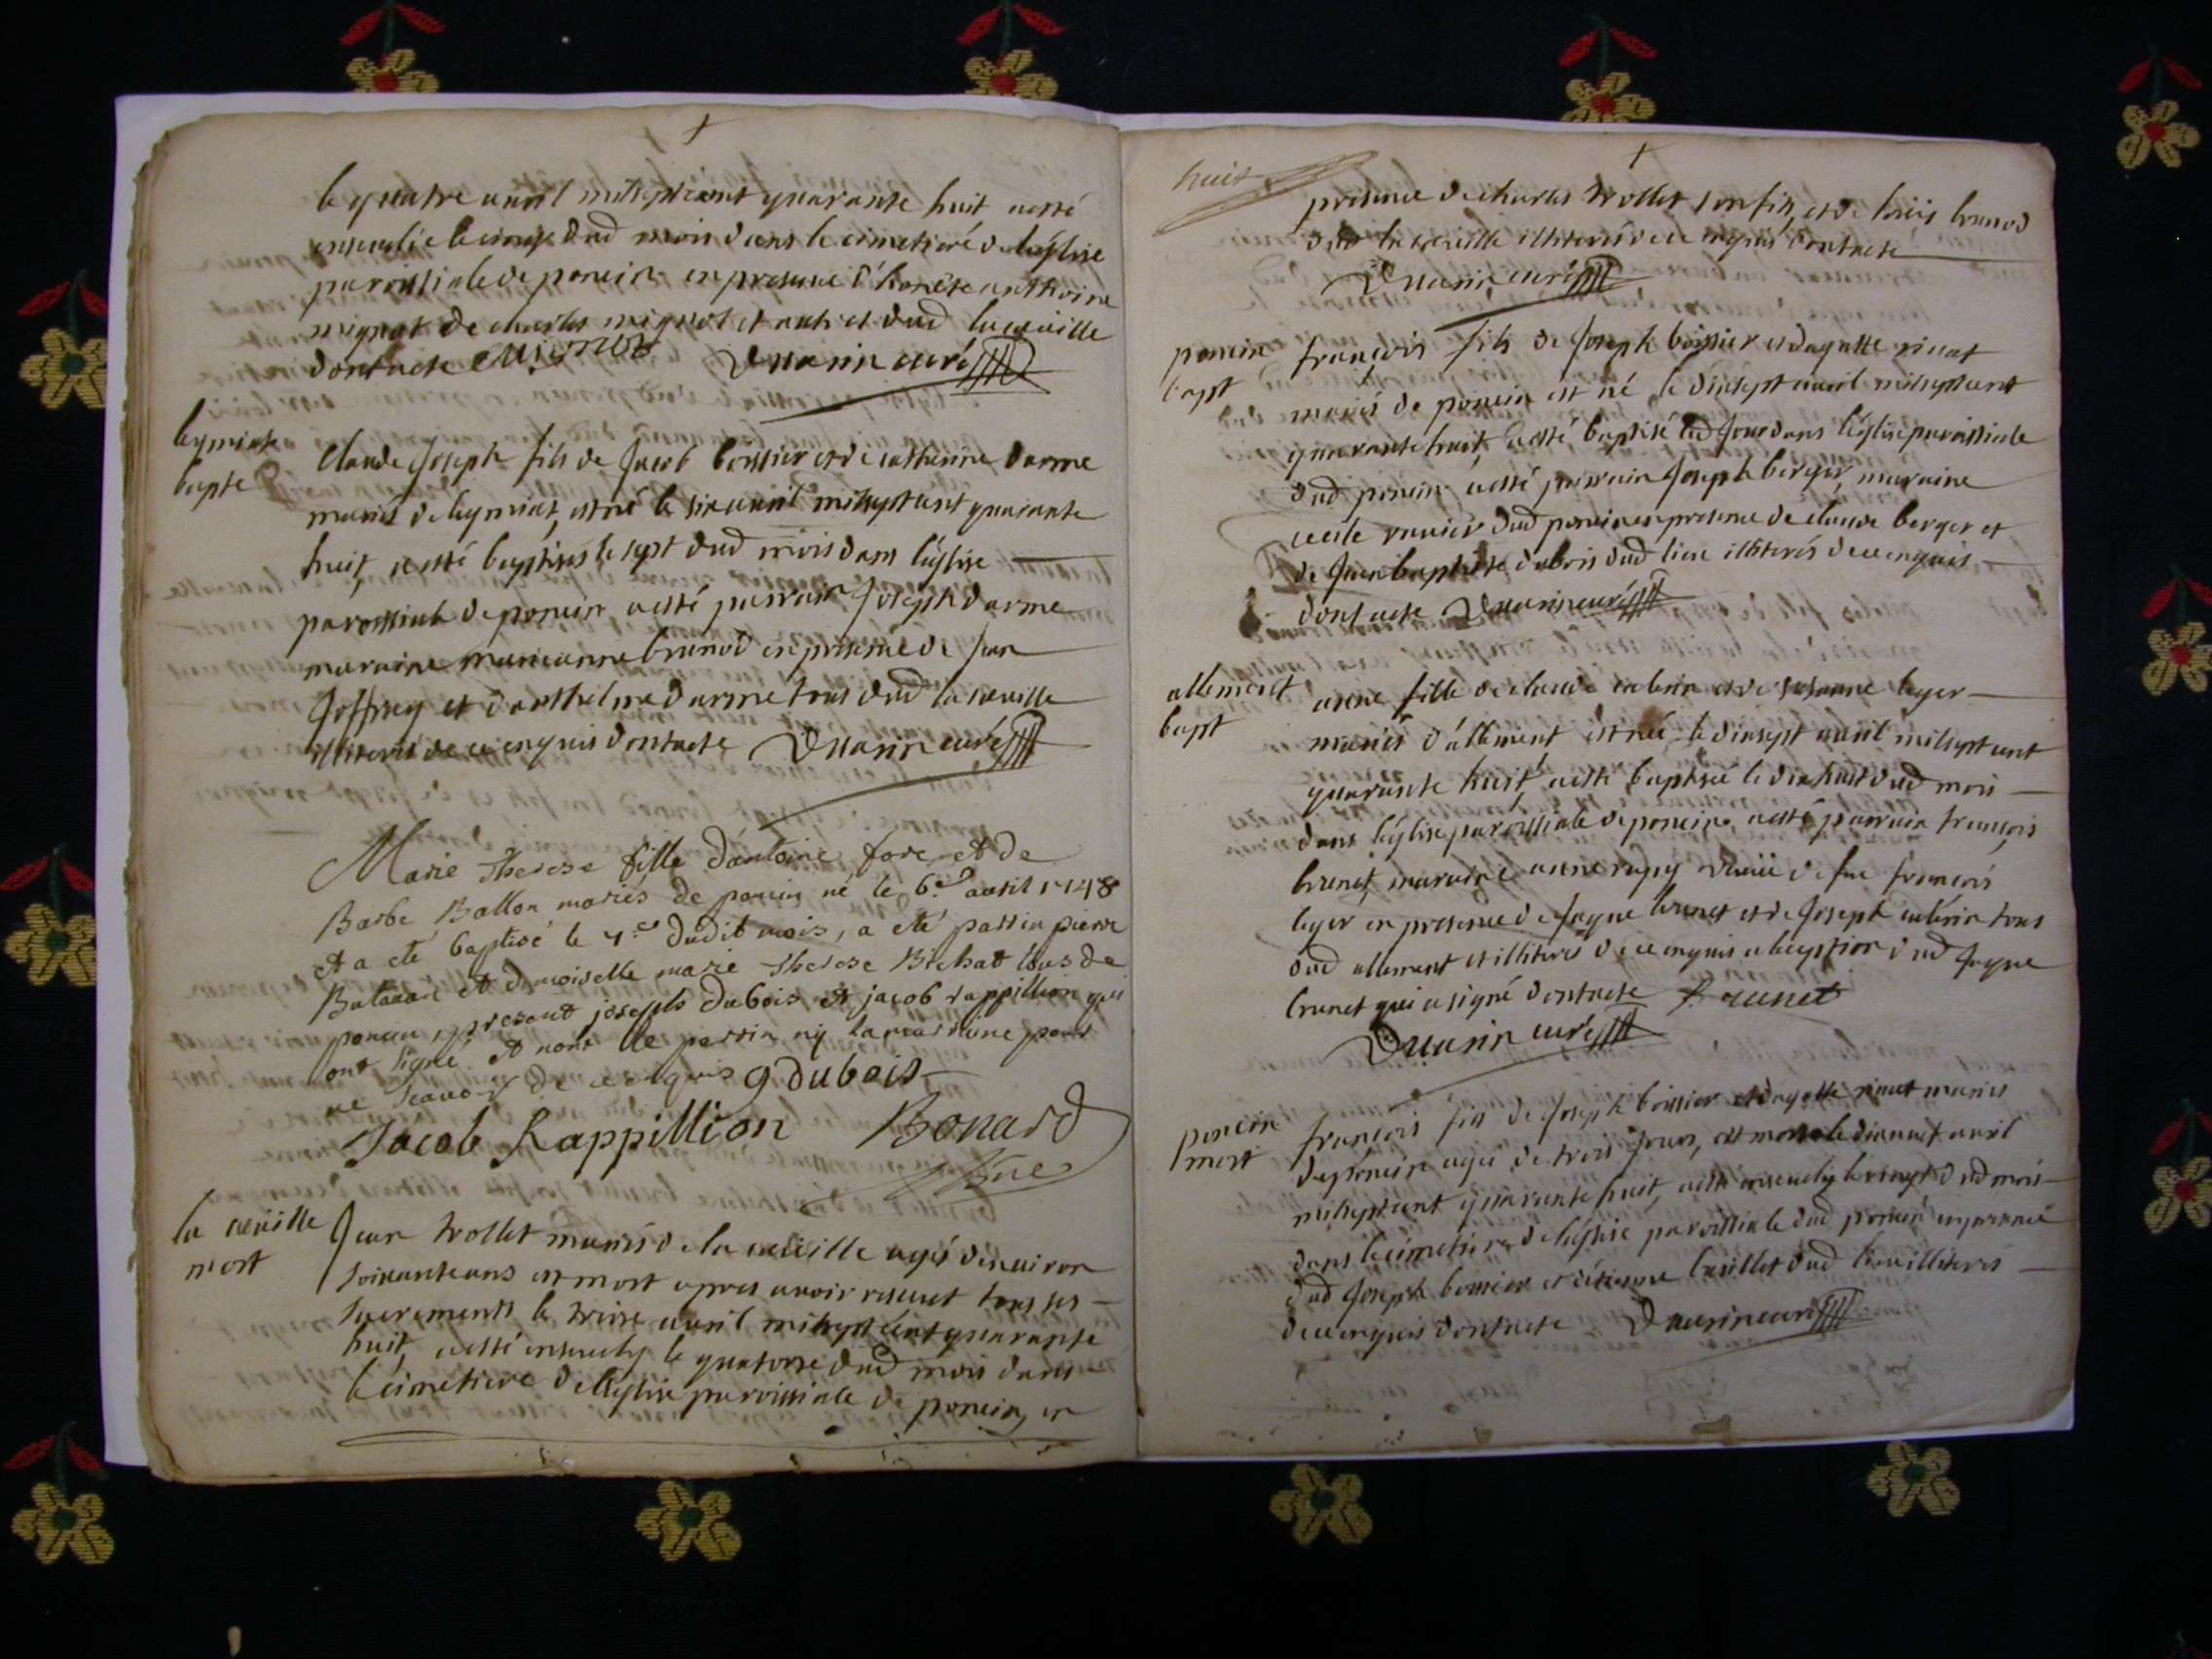 le quatre avril milseptcent quarante huit, a esté
ensevelie le cinq dud mois dans le cimetiere de l'église
parroissiale de poncin en presence d'honête anthoine
mignot de charles mignot et autres dud la cueille
dont acte Mignot Duarin curé
leymiat
bapte
Claude Joseph fils de Jacob boissier et de catherine darme
mariés de leymiat, est né le six avril milseptcent quarante
huit, a esté baptisés le sept dud mois dans l'église
paroissiale de poncin a esté parrain Joseph darme
maraine marieanne brunod en presence de Jean
Joffrey et d'anthelme darme tous dud la cueille
illiterés de ce enquis dont acte Duarin curé
Marie Therese fille d'antoine fore et de
Barbe Ballon mariés de poncin né le 6e avril 1748
et a eté baptisé le 7e dudit mois, a eté parrin pierre
et demoiselle marie Therese Bichat tous de
poncin, presant joseph dubois et jacob rappillion qui
ont signé et nont le parrin ny la marraine pour
ne scavoir de ce enquis J dubois
Jacob Rappillion Bonard
Vire
la cueille
mort
Jean trollet mariés de la cueille agés d'environ
soixante ans est mort apres avoir receut tous ses
sacrements le treize avril milseptcent quarante
huit, a esté ensevely le quatorze dud mois dans
le cimetiere de l'église paroissiale de poncin, en
huit
presence de charles trollet son fils, et de loüis brunod
dud la cueille illiterés de ce enquis dont acte
Duarin curé
poncin
bapt
françois fils de Joseph boissier et dagatte rinat
mariés de poncin est né le dixsept avril milseptcent
quarante huit, a esté baptisé led Jour dans l'église paroissiale
dud poncin a esté parrain Joseph berger, maraine
cecile dud poncin en presence de claude berger et
de Jean baptiste dubois dud lieu illiterés de ce enquis
dont acte Duarin curé
allement
bapt
anne fille de claude et de susanne leger
mariés d'allement est née le dixsept avril milseptcent
quarante huit, a esté baptisée le dixhuit dud mois
dans l'église paroissiale de poncin, a esté parrain françois
brunet, maraine anne rapy veuve de feu françois
leger en presence de Jayne brunet et de Joseph tous
dud allement et illiterés de ce enquis a l'exeption dud Jayne
brunet qui a signé dont acte Brunet
Duarin curé
poncin
mort
françois fils de Joseph boissier et dagatte rinat mariés
de poncin agé de trois Jours, est mort le dixneuf avril
milseptcent quarante huit, a esté ensevely le vingt dud mois
dans le cimetiere de l'église paroissiale dud poncin en presence
dud Joseph boissier et d'étienne dud lieu illiterés
de ce enquis dont acte Duarin curé